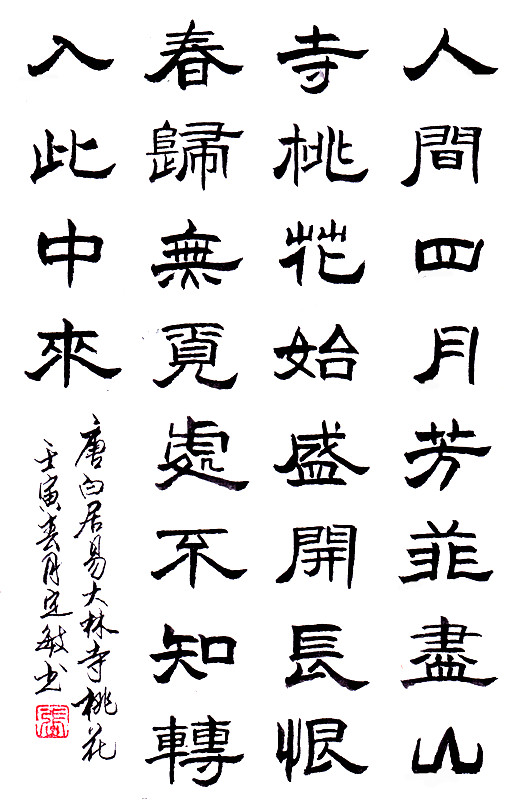 人間四月芳菲盡山
寺桃花始盛開長恨
春歸無覓處不知轉
入此中來
唐白居易大林寺桃花
壬寅春月定敏书